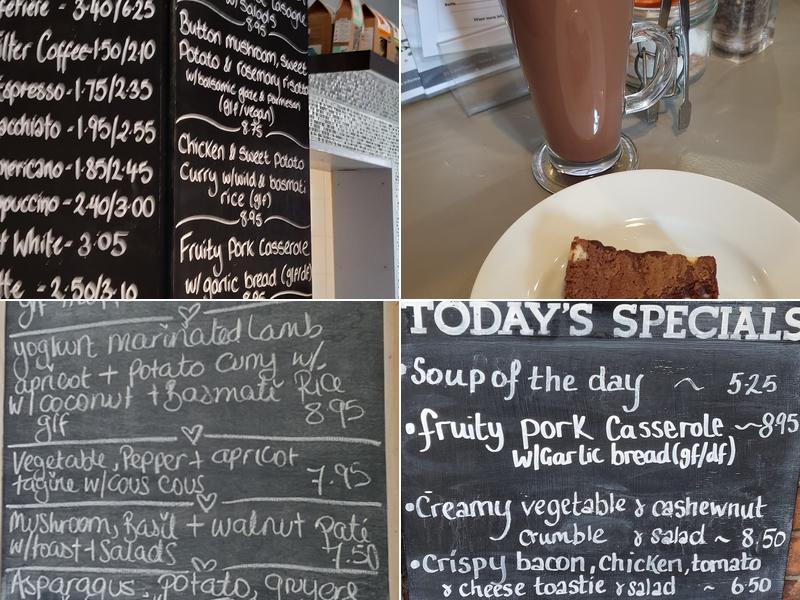 3.40/6.25
ilter Coffee-1.50/2.10
spresso-1.75/2.35
acchiato-1.95/2.55
mericano-1.85/2.45
ppuccino-2.40/3.00
t White-3.05
tte-2.50/3.10
Lasagne
w/Salads
8.95
Button mushroom, Sweet
Potato & rosemary risotto
w/balsamic glaze & parmesan
(glf/vegan)
8.75
Chicken & Sweet Potato
Curry w/wild & basmati
rice (glf)
8.95
Fruity Pork Casserole
w/garlic bread (glf/df)
8.95
yoghurt marinated Lamb
apricot + Potato Curry w/
w/coconut + Basmati Rice
glf 8.95
Vegetable, Pepper + apricot
tagine w/cous cous 7.95
Mushroom, Basil + walnut Paté
w/toast + Salads 7.50
Asparagus, potato, gruyere
TODAY'S SPECIALS
•Soup of the day ~ 5.25
•fruity pork Casserole ~8.95
w/Garlic bread(gf/df)
•Creamy vegetable & cashewnut
crumble & salad ~ 8.50
•Crispy bacon, chicken, tomato
& cheese toastie & salad ~ 6.50